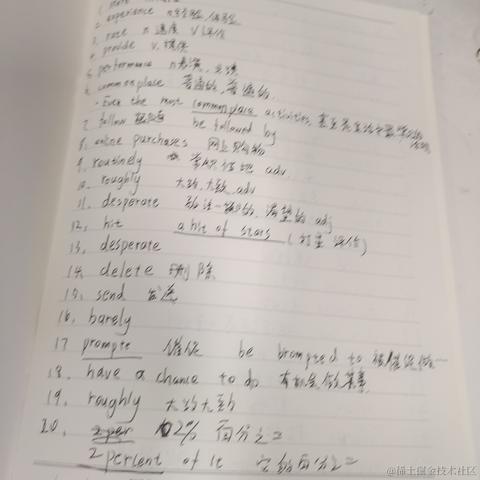 2. experience n 经验/体验
3. rate n 速度 v 评价
4. provide v. 提供
5. performance n 表演, 业绩
6. commonplace 普通的, 普遍的,
- Even the most commonplace activities 甚至是生活中最平常的
7. follow be followed by
8. online purchases 网上购物
9. routinely 常规性地 adv
10. roughly 大约, 大致 adv
11. desperate 的, 渴望的 adj
12. hit a hit of stars (打星 评价)
13. desperate
14. delete 删除
15. send 发送
16. barely
17 prompte 催促 be brompted to 被催促做…
18. have a chance to do 有机会做某事
19. roughly 大约大致
20. 2% 百分之二
2 percent of it 它的百分之二
@稀土掘金技术社区